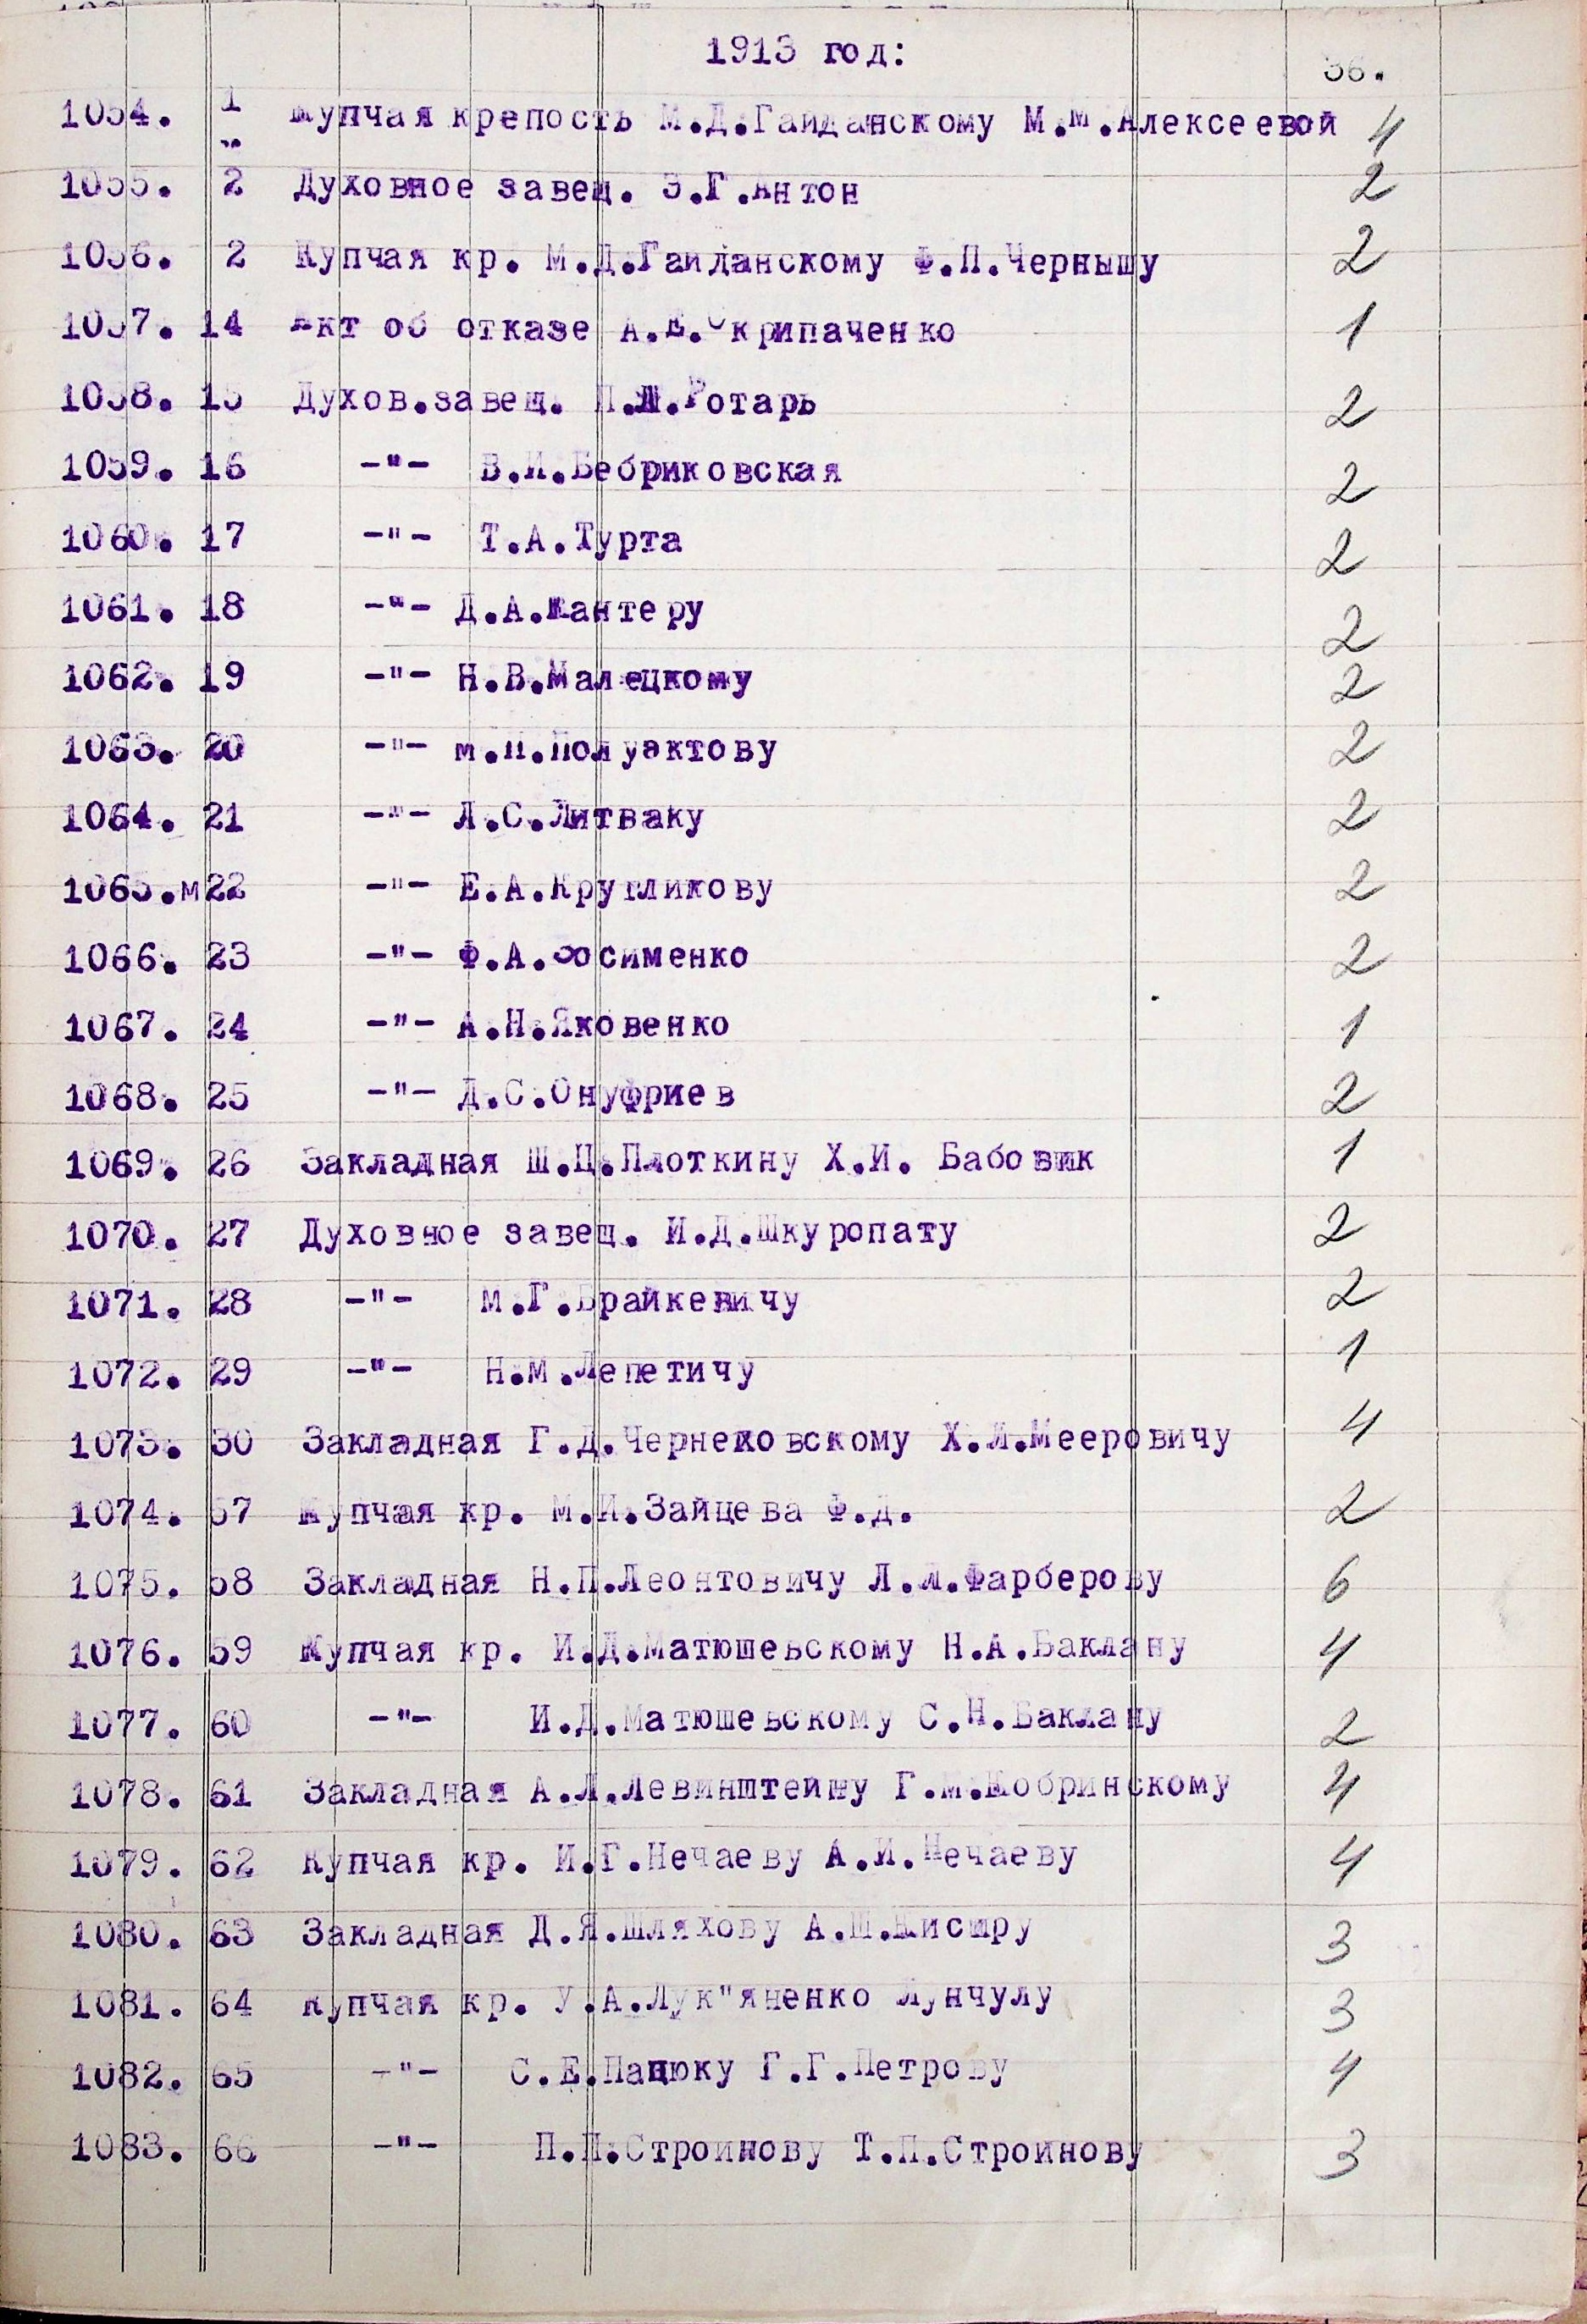 1913 год:
36.
1054. 1 Купчая крепость М.Д.Гайданскому М.М.Алексеевой 4
1055. 2 Духовное завещ. З.Г.Антон 2
1056. 2 Купчая кр. М.Д.Гайданскому Ф.П.Чернышу 2
1057. 14 Акт об отказе А.Е.Скрипаченко 1
1058. 15 Духов.завещ. Ротарь 2
1059. 16 -"- В.И.Бебриковская 2
1060. 17 -"- Т.А.Турта 2
1061. 18 -"- Д.А.Кантеру 2
1062. 19 -"- Н.В.Малецкому 2
1063. 20 -"- М.П.Полуактову 2
1064. 21 -"- Л.С.Литваку 2
1065.м 22 -"- Е.А.Крупликову 2
1066. 23 -"- Ф.А.Зосименко 2
1067. 24 -"- А.Н.Яковенко 1
1068. 25 -"- Д.С.Онуфриев 2
1069. 26 Закладная Ш.Ц.Плоткину Х.И. Бабовик 1
1070. 27 Духовное завещ. И.Д.Шкуропату 2
1071. 28 -"- М.Г.Брайкевичу 2
1072. 29 -"- Н.М.Лепетичу 1
1073. 30 Закладная Г.Д.Черняховскому Х.Л.Мееровичу 4
1074. 57 Купчая кр. М.И.Зайцева Ф.Д. 2
1075. 58 Закладная Н.П.Леонтовичу Л.Л.Фарберову 6
1076. 59 Купчая кр. И.Д.Матюшевскому Н.А.Баклану 4
1077. 60 -"- И.Д.Матюшевскому С.Н.Баклану 2
1078. 61 Закладная А.Л.Левинштейну Г.М.Кобринскому 4
1079. 62 Купчая кр. И.Г.Нечаеву А.И.Нечаеву 4
1080. 63 Закладная Д.Я.Шляхову А.Ш. 3
1081. 64 Купчая кр. У.А.Лук"яненко Лунчулу 3
1082. 65 -"- С.Е.Пацюку Г.Г.Петрову 4
1083. 66 -"- П.П.Строинову Т.П.Строинову 3